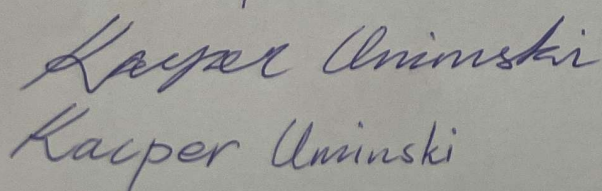 Kacper Uminski
Kacper Uminski